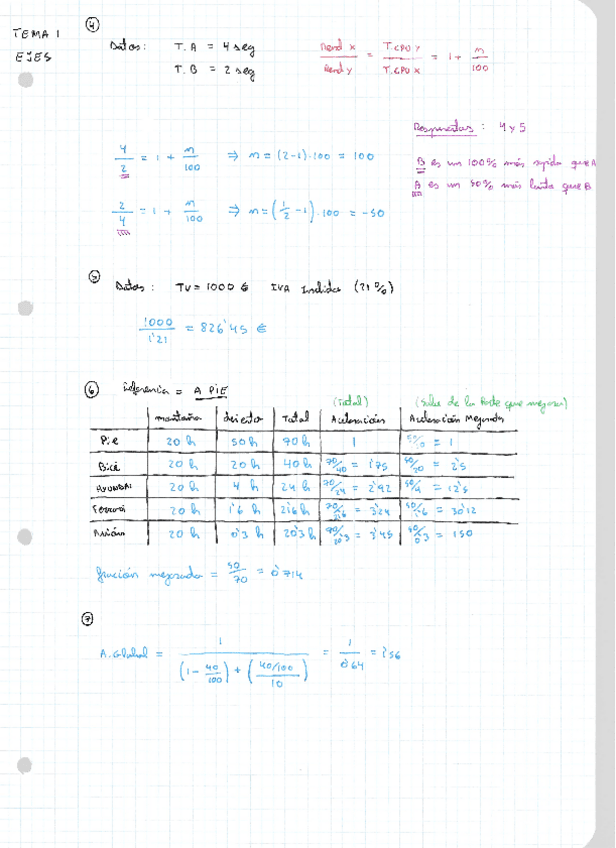 TEMA 1
EJES
④
Datos: T.A = 4 seg
T.B = 2 seg
Rend X / Rend Y = T.CPU Y / T.CPU X = 1 + n/100
Respuestas: 4 y 5
4/2 = 1 + n/100 ⇒ n = (2-1)·100 = 100
B es un 100% más rápido que A
A es un 50% más lento que B
2/4 = 1 + n/100 ⇒ n = (1/2 - 1)·100 = -50
⑤
Datos: TV = 1000 € IVA Incluido (21%)
1000/1'21 = 826'45 €
⑥ referencia = A PIE
(Total) (Sale de la parte que mejora)
montaña desierto Total Aceleración Aceleración Mejorada
Pie 20 h 50 h 70 h 1 50/50 = 1
Bici 20 h 20 h 40 h 70/40 = 1'75 50/20 = 2'5
HYUNDAI 20 h 4 h 24 h 70/24 = 2'92 50/4 = 12'5
Ferrari 20 h 1'6 h 21'6 h 70/21'6 = 3'24 50/1'6 = 30'12
Avión 20 h 0'3 h 20'3 h 70/20'3 = 3'45 50/0'3 = 150
fracción mejorada = 50/70 = 0'714
⑦
A.Global = 1 / ((1 - 40/100) + (40/100 / 10)) = 1/0'64 = 1'56